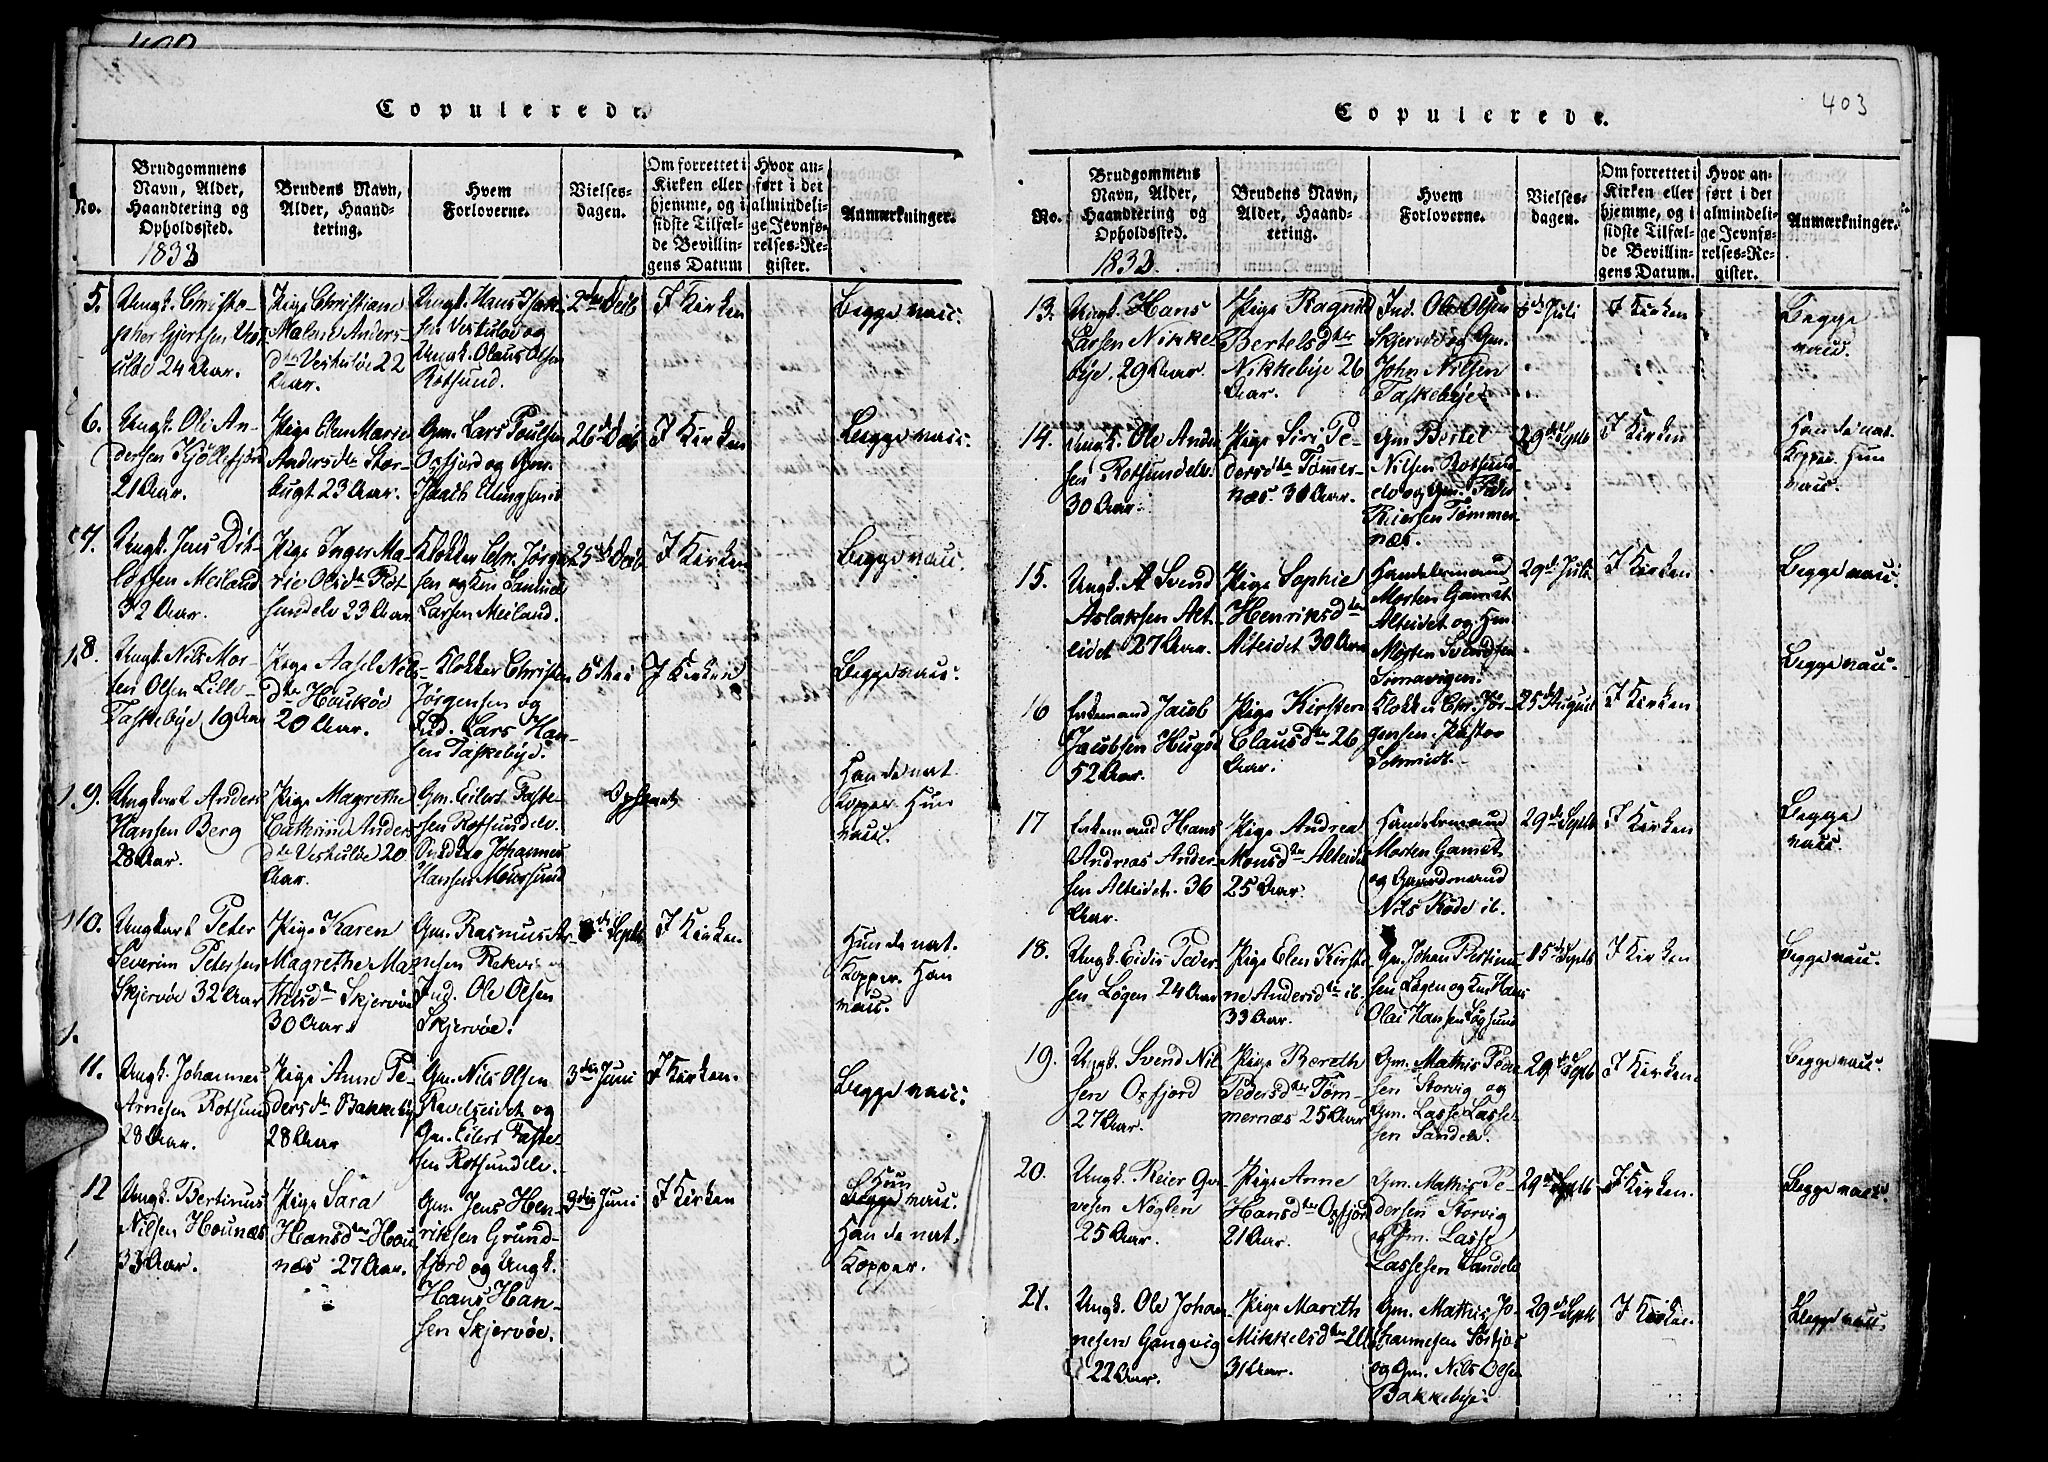 Copulerede.
No.
Brudgommens
Navn, Alder,
Haandtering og
Opholdssted.
1833
Brudens Navn,
Alder, Haand-
tering.
Hvem
Forloverne.
Vielses-
dagen.
Om forrettet i
Kirken eller
hjemme, og i
sidste Tilfæl-
de Bevillin-
gens Datum
Hvor an-
ført i det
almindeli-
ge Jevnfø-
relses-Re-
gister.
Anmærkninger.
5.
Ungk. Christo-
pher Gjertsen
24 Aar.
Pige Christiane
Malene Anders-
dtr 22
Aar.
Ungk. Hans
sen og
Ungk. Olaus Olsen
Rotsund.
I Kirken
Begge nauc.
6.
Ungk. Ole An-
dersen Kjøllefjord
21 Aar.
Pige Elen Marie
Andersdtr Stor-
bugt 23 Aar.
Gm. Lars Poulsen
Oxfjord og Gm.
I Kirken
Begge nauc.
7.
Ungk. Jens Dit-
lefsen Meiland
32 Aar.
Pige Inger Ma-
rie Olsdtr Rot-
sundelv 23 Aar
Klokker Chr. Jørgen-
sen og Samuel
Larsen Meiland.
I Kirken
Begge nauc.
8.
Ungk. Nils Mor-
ten Olsen Lille-
Taskebye 19 Aar
Pige Aasel Nils-
dtr Houkøe
20 Aar.
Klokker Christen
Jørgensen og
Ind. Lars Han-
sen Taskebye.
I Kirken
Begge nauc.
9.
Ungkarl Anders
Hansen Berg
28 Aar.
Pige Magrethe
Cathrine Anders
dtr 20
Aar.
Gm. Eilert Faste-
sen Rotsundelv.
Johannes
Hansen Mours und
Ophævet
Han de nat.
Kopper. Hun
nauc.
10.
Ungkarl Peter
Severin Petersen
Skjervøe 32 Aar
Pige Karen
Magrethe Ma-
Skjervøe
30 Aar.
Gm. Rasmus Ar-
nesen Rekvig
Ind. Ole Olsen
Skjervøe.
Septb
I Kirken.
Hun de nat.
Kopper. Han
nauc.
11.
Ungk. Johannes
Arnesen Rotsund
28 Aar.
Pige Anne Pe-
dersdtr Bakkeby
28 Aar
Gm. Nils Olsen
Ravelseidet og
Gm. Eilert Faste-
sen Rotsundelv.
3die Juni
I Kirken.
Begge nauc.
12
Ungk. Bertinus
Nilsen Hounæs
33 Aar.
Pige Sara
Hansdtr Hou-
næs 27 Aar.
Gm. Jens Hen-
riksen Grund-
fjord og Ungk.
Hans Han-
sen Skjervøe.
9de Juni
I Kirken
Hun
Begge nauc.
Han de nat.
Kopper.
Copulerede.
403
No.
Brudgommens
Navn, Alder,
Haandtering og
Opholdssted.
1833.
Brudens Navn,
Alder, Haand-
tering.
Hvem
Forloverne.
Vielses-
dagen.
Om forrettet i
Kirken eller
hjemme, og i
sidste Tilfæl-
de Bevillin-
gens Datum.
Hvor an-
ført i det
almindeli-
ge Jevnfø-
relses-Re-
gister.
Anmærkninger.
13.
Ungk. Hans
Larsen Nikke-
bye. 29 Aar.
Pige Ragnild
Bertelsdtr
Nikkebye 26
Aar.
Ind. Ole Olsen
Skjervøe og Gm.
John Nilsen
Taskebye.
Juli
I Kirken
Begge
nauc.
14.
Ungk. Ole Ander
sen Rotsundelv.
30 Aar.
Pige Siri Pe-
dersdtr Tømmer-
næs 30 Aar.
Gm Bertel
Nilsen Rotsund-
elv og Gm. Peder
Reiersen Tømmer-
næs.
29de Septb
I Kirken
Han de nat.
Kopper. Hun
nauc.
15.
Ungk. Svend
Aslaksen Alt-
eidet 27 Aar.
Pige Sophie
Henriksdtr
Alteidet 30 Aar
Handelsmand
Morten Gamst
Alteidet og
Morten Svendsen
29de Juli
I Kirken
Begge nauc.
16
Enkemand Jacob
Jacobsen Hugøe
52 Aar.
Pige Kirsten
Clausdtr 26
Aar.
Klokker Chr. Jør-
gensen. Pastor
Schmidt.
25de August
I Kirken
Begge nauc.
17
Enkemand Hans
Andreas Ander-
sen Alteidet. 36
Aar.
Pige Andrea
Monsdtr Alteidet
25 Aar.
Handelsmand
Morten Gamst
og Gaardmand
Nils Kode ib.
29de Septb
I Kirken
Begge
nauc.
18.
Ungk. Eidis Peder-
sen Løgen 24 Aar
Pige Elen Kirsti-
ne Andersdtr ib.
33 Aar.
Gm. Johan Bertinus
sen Løgen og Hans
Olai Hansen Løgsund
15de Septb
I Kirken
Begge nauc.
19.
Ungk. Svend Nil
sen Oxfjord
27 Aar.
Pige Bereth
Pedersdtr Tøm-
mernæs 25 Aar
Gm. Mathis Peder
sen Storvig og
Gm. Lasse Lasse-
sen Sandelv.
29de Septb
I Kirken.
Begge nauc.
20.
Ungk. Reier Qv-
vesen Nøglen
25 Aar.
Pige Anne
Hansdtr Oxfjord
21 Aar.
Gm. Mathis Pe-
dersen Storvig
og Gm. Lasse
Lassesen Sandelv
29de Septb
I Kirken.
Begge nauc.
21.
Ungk. Ole Johan
nesen Gangvig
22 Aar.
Pige Mareth
Mikkelsdtr
31 Aar.
Gm. Mathis Jo-
hannesen
og Gm. Nils Olsen
Bakkebye.
29de Septb
I Kirke.
Begge nauc.